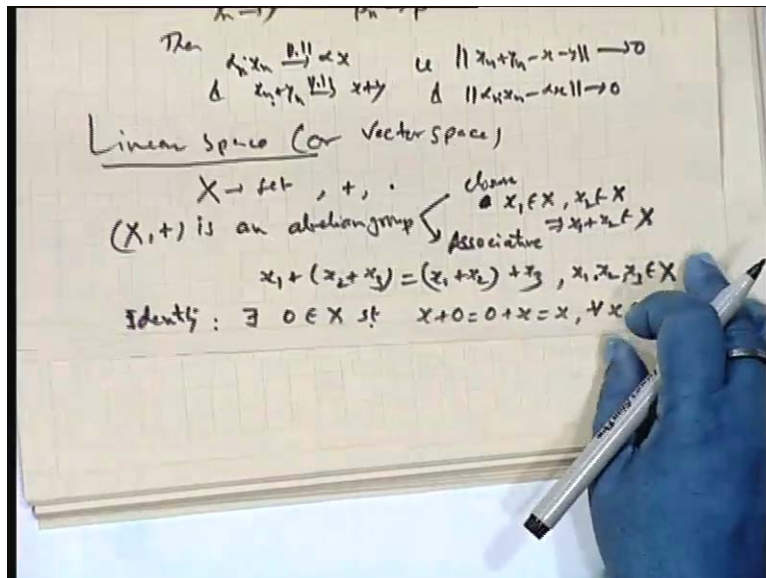 Then αₙxₙ —‖.‖→ αx ie ‖xₙ+yₙ-x-y‖ → 0
& xₙ+yₙ —‖.‖→ x+y & ‖αₙxₙ-αx‖ → 0
Linear Space (or Vector space)
X → set , + , .
closure
(X,+) is an abelian group x₁ ∈ X, x₂ ∈ X
⇒ x₁+x₂ ∈ X
Associative
x₁+(x₂+x₃) = (x₁+x₂)+x₃ , x₁,x₂,x₃ ∈ X
Identity : ∃ 0 ∈ X st x+0=0+x=x, ∀ x